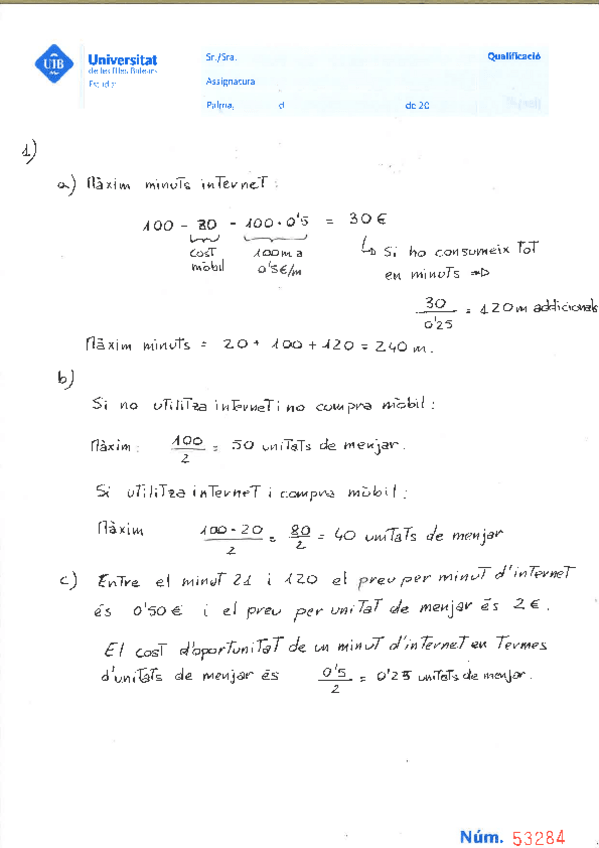 UIB
Universitat
de les Illes Balears
Sr./Sra.
Qualificació
Assignatura
Palma, d de 20
1)
a) Màxim minuts internet:
100 - 20 - 100 · 0'5 = 30 €
cost mòbil
100 m a 0'5€/m
↳ Si ho consumeix tot
en minuts ⇒
30/0'25 = 120 m addicionals
Màxim minuts = 20 + 100 + 120 = 240 m.
b)
Si no utilitza internet i no compra mòbil:
Màxim: 100/2 = 50 unitats de menjar.
Si utilitza internet i compra mòbil:
Màxim 100-20/2 = 80/2 = 40 unitats de menjar
c) Entre el minut 21 i 120 el preu per minut d'internet
és 0'50 € i el preu per unitat de menjar és 2 €.
El cost d'oportunitat de un minut d'internet en termes
d'unitats de menjar és 0'5/2 = 0'25 unitats de menjar.
Núm. 53284